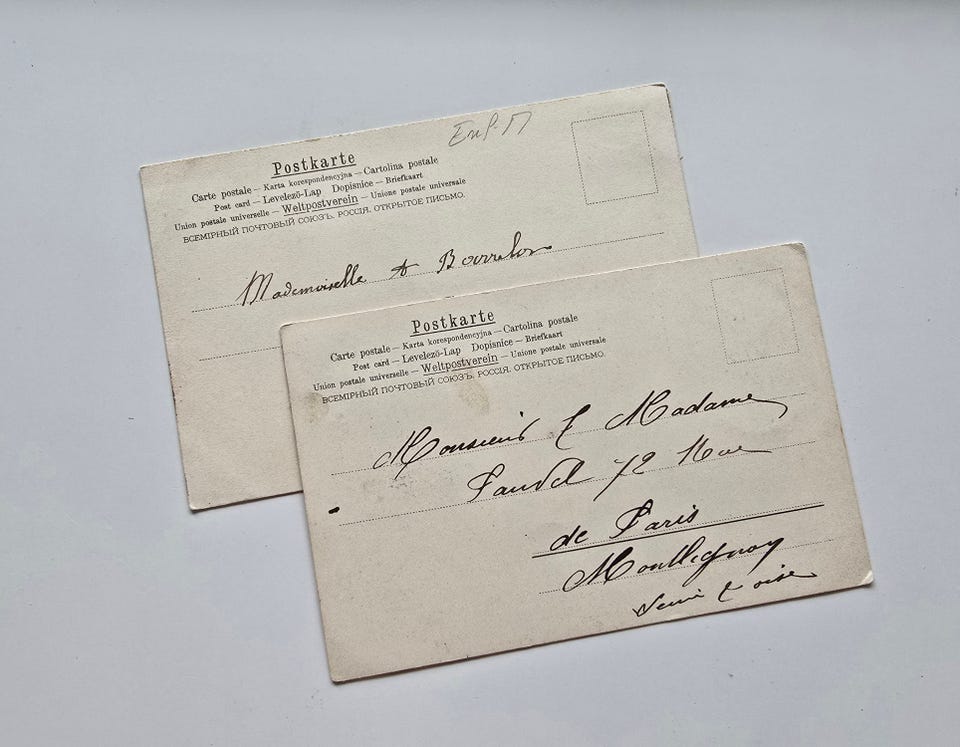 Postkarte
Carte postale — Karta korespondencyjna — Cartolina postale
Post card — Levelező-Lap Dopisnice — Briefkaart
Union postale universelle — Weltpostverein — Unione postale universale
ВСЕМІРНЫЙ ПОЧТОВЫЙ СОЮЗЪ. РОССІЯ. ОТКРЫТОЕ ПИСЬМО.
Mademoiselle A Bourrelon
Postkarte
Carte postale — Karta korespondencyjna — Cartolina postale
Post card — Levelező-Lap Dopisnice — Briefkaart
Union postale universelle — Weltpostverein — Unione postale universale
ВСЕМІРНЫЙ ПОЧТОВЫЙ СОЮЗЪ. РОССІЯ. ОТКРЫТОЕ ПИСЬМО.
Monsieur & Madame
72 Rue
de Paris
Seine & oise